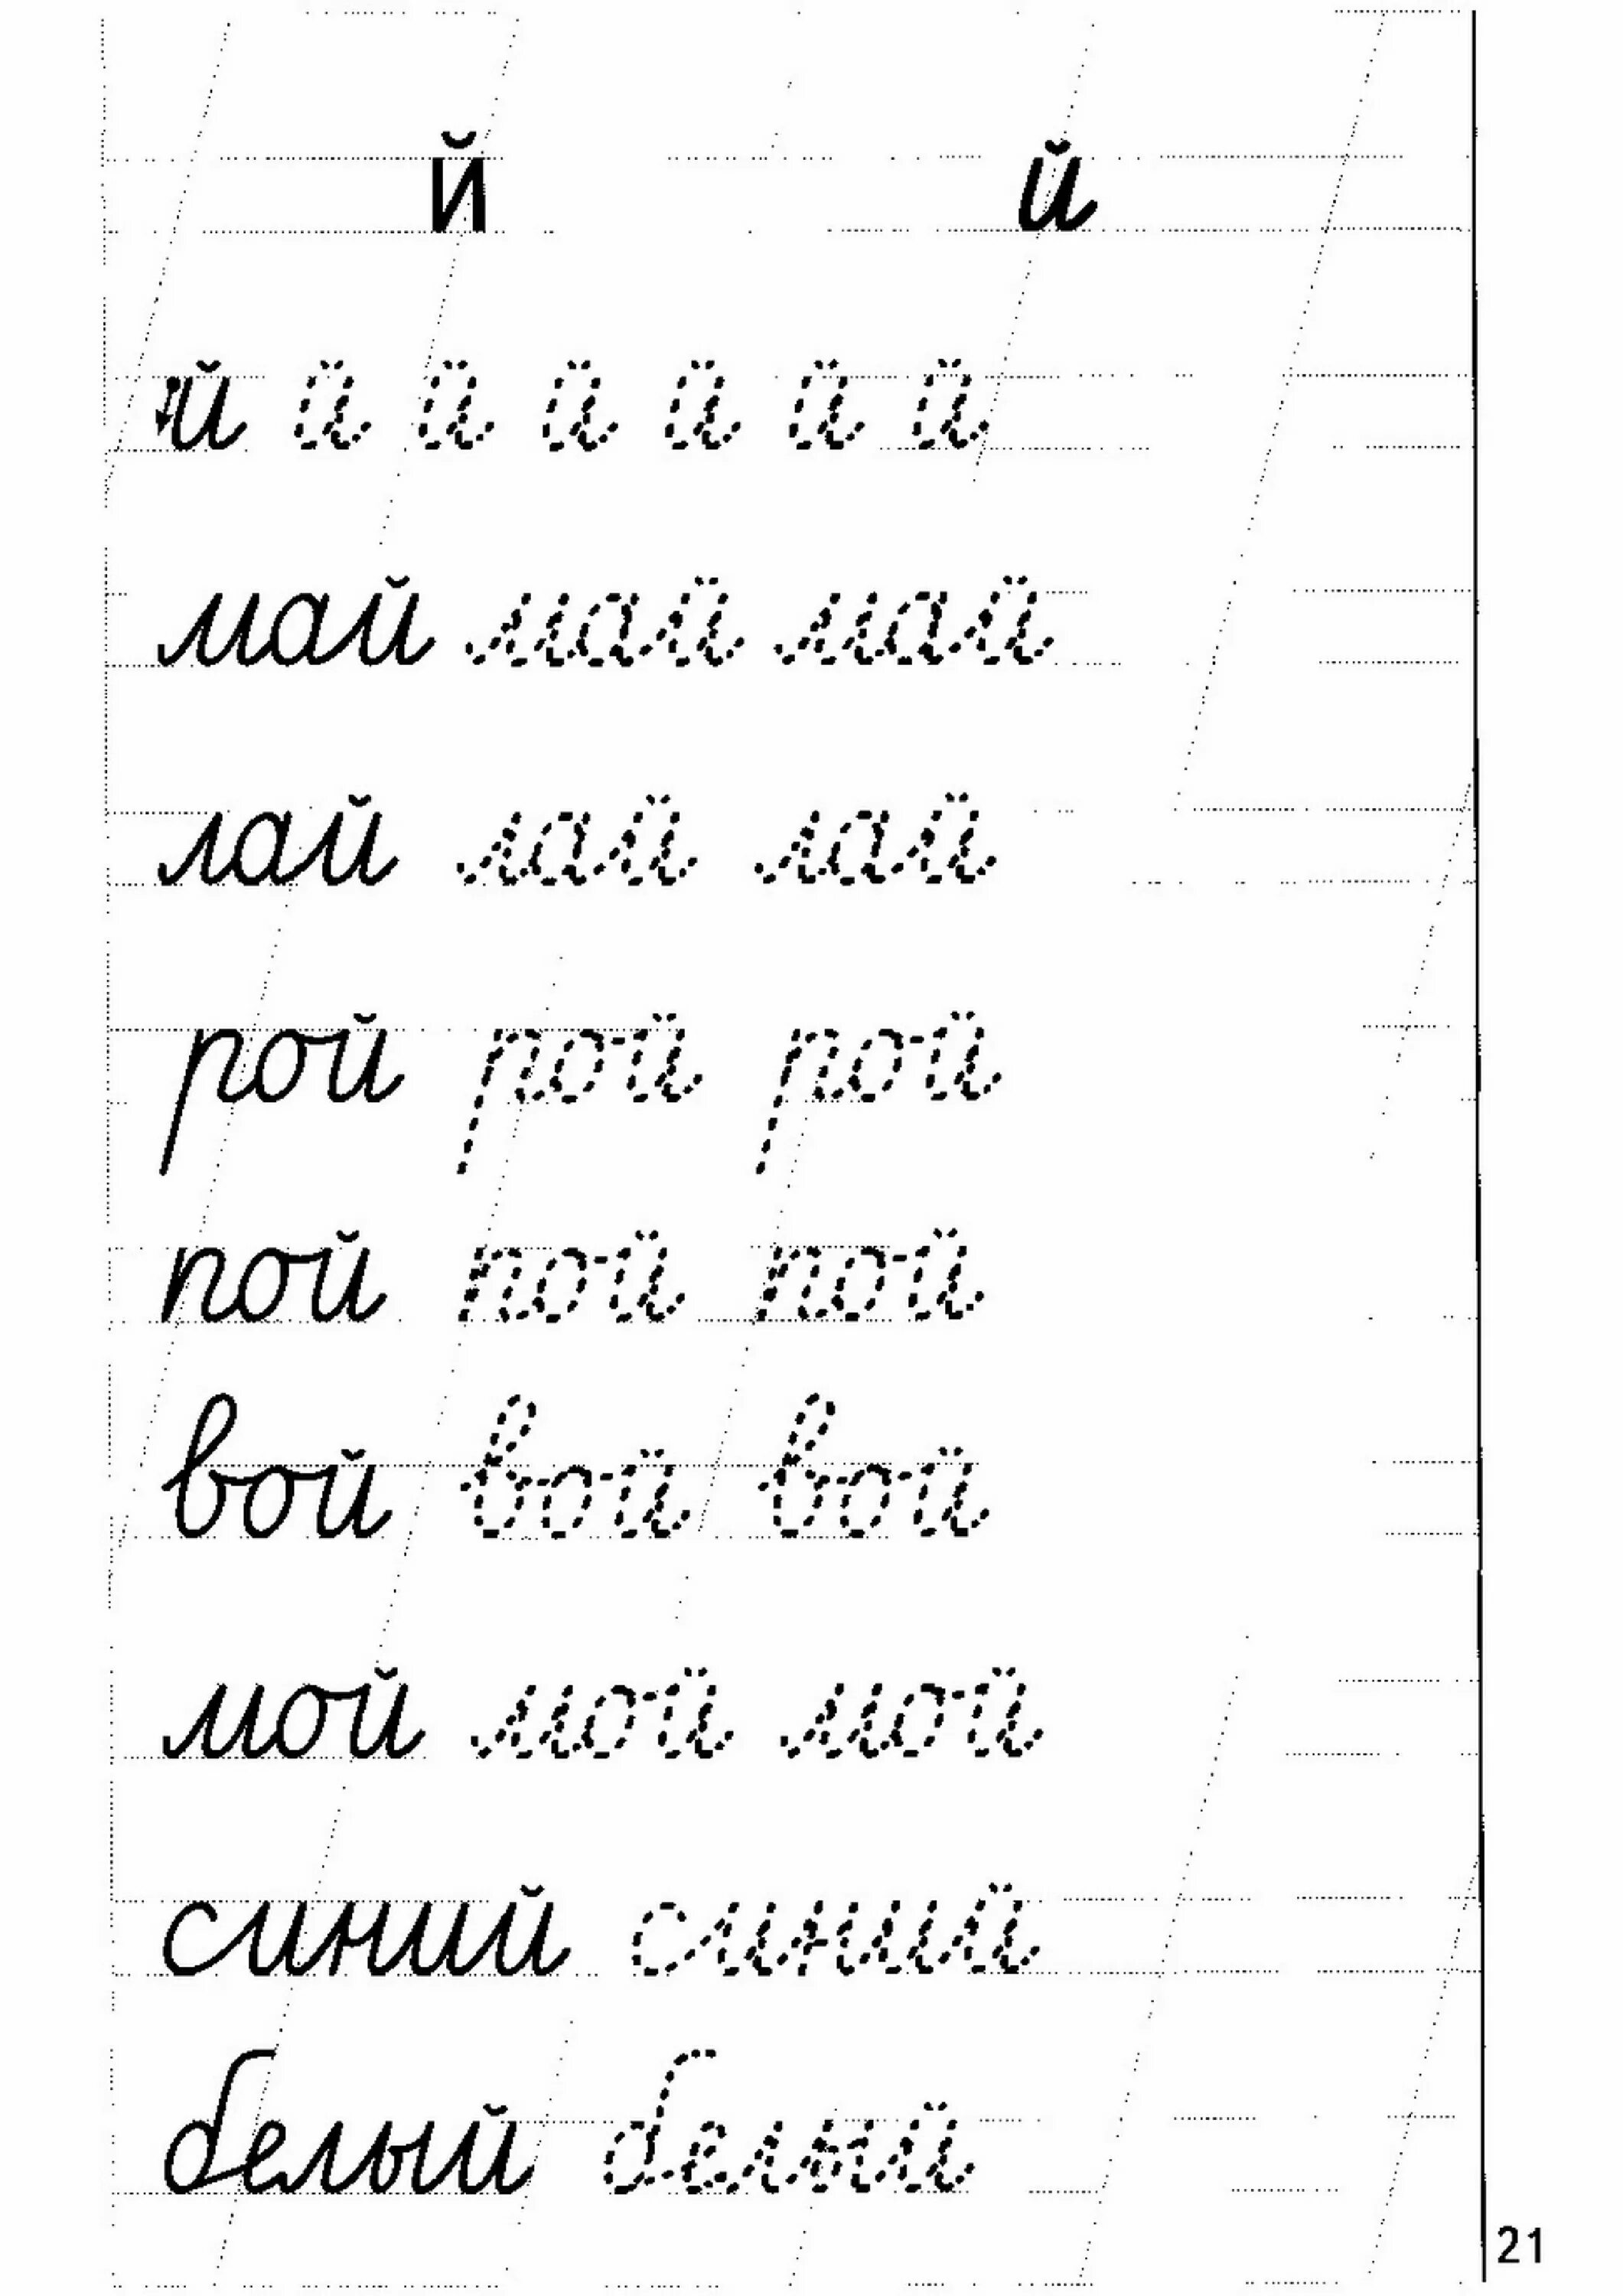 й й
й й й й й й й
май май май
лай лай лай
рой рой рой
пой пой пой
вой вой вой
мой мой мой
синий синий
белый белый
21